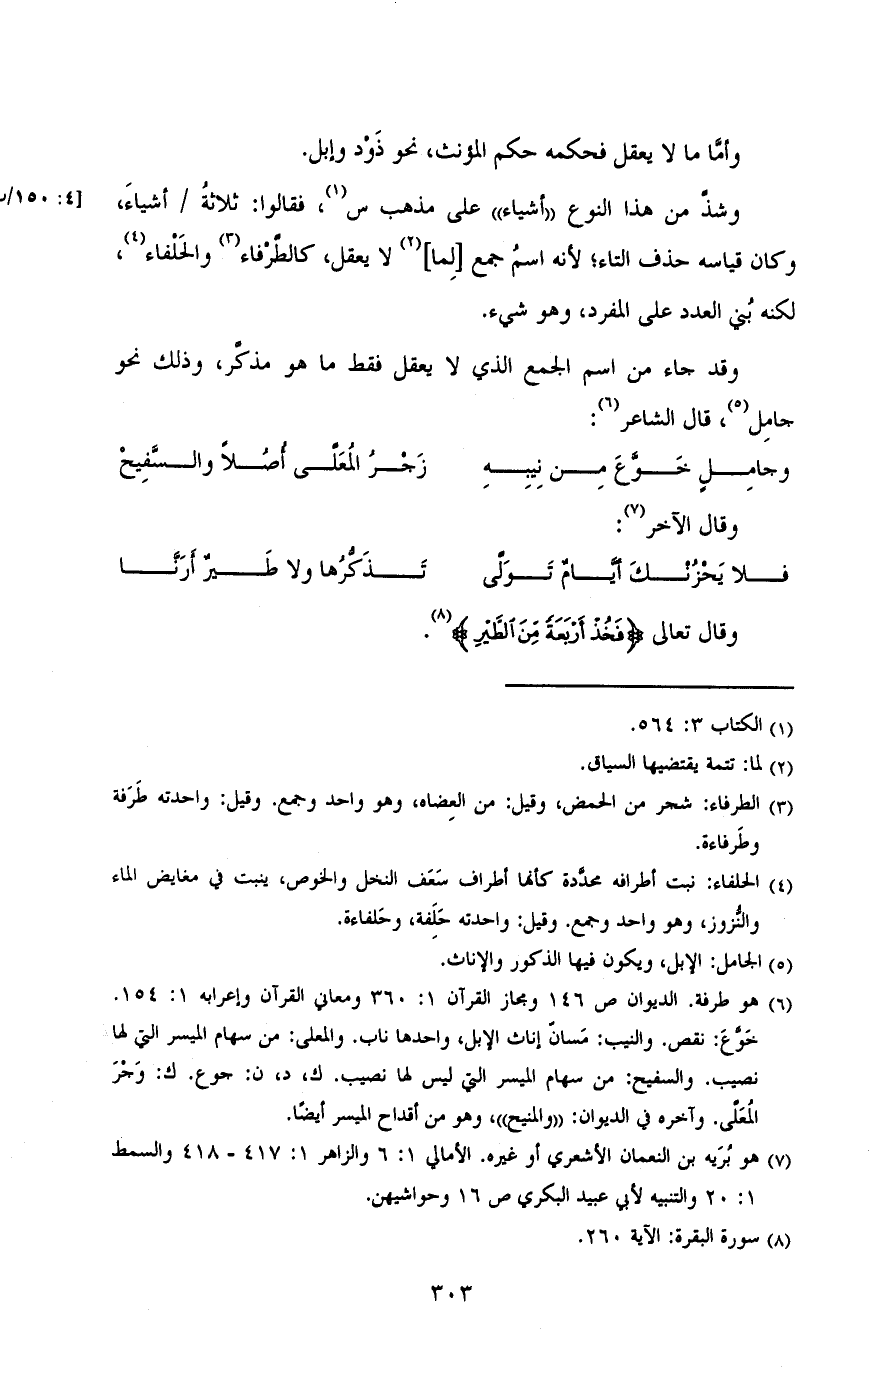 وأمَّا ما لا يعقل فحكمه حكم المؤنث، نحو ذَوْد وإبل.
وشذَّ من هذا النوع «أشياء» على مذهب س(١)، فقالوا: ثلاثةُ / أشياءَ، [٤: ١٥٠/
وكان قياسه حذف التاء؛ لأنه اسمُ جمع [لِما](٢) لا يعقل، كالطَّرْفاء(٣) والحَلْفاء(٤)،
لكنه بُني العدد على المفرد، وهو شيء.
وقد جاء من اسم الجمع الذي لا يعقل فقط ما هو مذكَّر، وذلك نحو
جامِل(٥)، قال الشاعر(٦):
وجامِـلٍ خَـوَّعَ مِـن نِيبِـهِ زَجْـرُ المُعَلَّـى أُصُـلاً والـسَّفِيحْ
وقال الآخر(٧):
فـلا يَحْزُنْـكَ أيَّـامٌ تَـوَلَّى تَـذَكُّرُها ولا طَـيرٌ أَرَنَّـا
وقال تعالى ﴿فَخُذْ أَرْبَعَةً مِّنَ ٱلطَّيْرِ﴾(٨).
(١) الكتاب ٣: ٥٦٤.
(٢) لما: تتمة يقتضيها السياق.
(٣) الطرفاء: شجر من الحمض، وقيل: من العِضاه، وهو واحد وجمع. وقيل: واحدته طَرَفة
وطَرفاءة.
(٤) الحلفاء: نبت أطرافه محدَّدة كأنها أطراف سَعَف النخل والخوص، ينبت في مغايض الماء
والنُّزوز، وهو واحد وجمع. وقيل: واحدته حَلِفة، وحَلفاءة.
(٥) الجامل: الإبل، ويكون فيها الذكور والإناث.
(٦) هو طرفة. الديوان ص ١٤٦ ومجاز القرآن ١: ٣٦٠ ومعاني القرآن وإعرابه ١: ١٥٤.
خَوَّعَ: نقص. والنيب: مَسانّ إناث الإبل، واحدها ناب. والمعلى: من سهام الميسر التي لها
نصيب. والسفيح: من سهام الميسر التي ليس لها نصيب. ك، د، ن: جوع. ك: وَجْرَ
المُعَلَّى. وآخره في الديوان: «والمنيح»، وهو من أقداح الميسر أيضًا.
(٧) هو بُرَيه بن النعمان الأشعري أو غيره. الأمالي ١: ٦ والزاهر ١: ٤١٧ - ٤١٨ والسمط
١: ٢٠ والتنبيه لأبي عبيد البكري ص ١٦ وحواشيهن.
(٨) سورة البقرة: الآية ٢٦٠.
٣٠٣